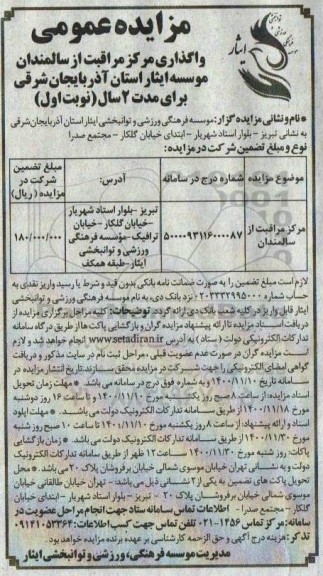 موسسه فرهنگی ورزشی و توانبخشی
ایثار
مزایده عمومی
واگذاری مرکز مراقبت از سالمندان
موسسه ایثار استان آذربایجان شرقی
برای مدت ۲ سال (نوبت اول)
* نام و نشانی مزایده گزار: موسسه فرهنگی ورزشی و توانبخشی ایثار استان آذربایجان شرقی
به نشانی تبریز - بلوار استاد شهریار - ابتدای خیابان گلکار - مجتمع صدرا
نوع و مبلغ تضمین شرکت در مزایده:
موضوع مزایده
شماره درج در سامانه
آدرس:
مبلغ تضمین شرکت در مزایده (ریال)
مرکز مراقبت از سالمندان
۵۰۰۰۰۹۳۱۱۶۰۰۰۰۸۷
تبریز -بلوار استاد شهریار
-خیابان گلکار -خیابان
ترافیک -مؤسسه فرهنگی
ورزشی و توانبخشی
ایثار -طبقه همکف
۱۸۰/۰۰۰/۰۰۰
لازم است مبلغ تضمین را به صورت ضمانت نامه بانکی بدون قید و شرط یا رسید واریز نقدی به
حساب شماره ۰۲۰۳۳۳۲۹۹۵۰۰۰ نزد بانک دی، به نام موسسه فرهنگی ورزشی و توانبخشی
ایثار قابل واریز در کلیه شعب بانک دی ارائه گردد. توضیحات: کلیه مراحل برگزاری مزایده از
دریافت اسناد مزایده تا ارائه پیشنهاد مزایده گران و بازگشایی پاکت ها از طریق درگاه سامانه
تدارکات الکترونیکی دولت (ستاد) به آدرس www.setadiran.ir انجام خواهد شد و لازم
است مزایده گران در صورت عدم عضویت قبلی، مراحل ثبت نام در سایت مذکور و دریافت
گواهی امضای الکترونیکی را جهت شرکت در مزایده محقق سازند. تاریخ انتشار مزایده در
سامانه تاریخ ۱۴۰۰/۱۱/۱۰ و به شماره فوق درج در سامانه می باشد. * مهلت زمان تحویل
اسناد مزایده: از ساعت ۸ صبح روز یکشنبه مورخ ۱۴۰۰/۱۱/۱۰ تا ساعت ۱۶ روز دوشنبه
مورخ ۱۴۰۰/۱۱/۱۸ از طریق سامانه تدارکات الکترونیک دولت می باشد. * مهلت اپلود
اسناد و ارائه پیشنهاد: از ساعت ۸ روز یکشنبه مورخ ۱۴۰۰/۱۱/۱۰ تا ساعت ۱۰ صبح روز شنبه
مورخ ۱۴۰۰/۱۱/۳۰ از طریق سامانه تدارکات الکترونیک دولت می باشد. * زمان بازگشایی
پاکات: روز شنبه مورخ ۱۴۰۰/۱۱/۳۰ ساعت ۱۲ ظهر از طریق سامانه تدارکات الکترونیک
دولت و به نشانی تهران خیابان موسوی شمالی خیابان برفروشان پلاک ۲۰ می باشد. * محل
تحویل پاکت های تضمین به یکی از ۲ نشانی ذیل می باشد: - تهران خیابان طالقانی خیابان
موسوی شمالی خیابان برفروشان پلاک ۲۰ - تبریز - بلوار استاد شهریار - ابتدای خیابان
گلکار - مجتمع صدرا - اطلاعات تماس سامانه ستاد جهت انجام مراحل عضویت در
سامانه: مرکز تماس ۱۴۵۶-۰۲۱ تلفن تماس جهت کسب اطلاعات: ۰۹۱۴۱۰۵۲۳۶۴
تذکر: هزینه درج آگهی و حق الزحمه کارشناسی بر عهده برنده مزایده خواهد بود.
مدیریت موسسه فرهنگی، ورزشی و توانبخشی ایثار